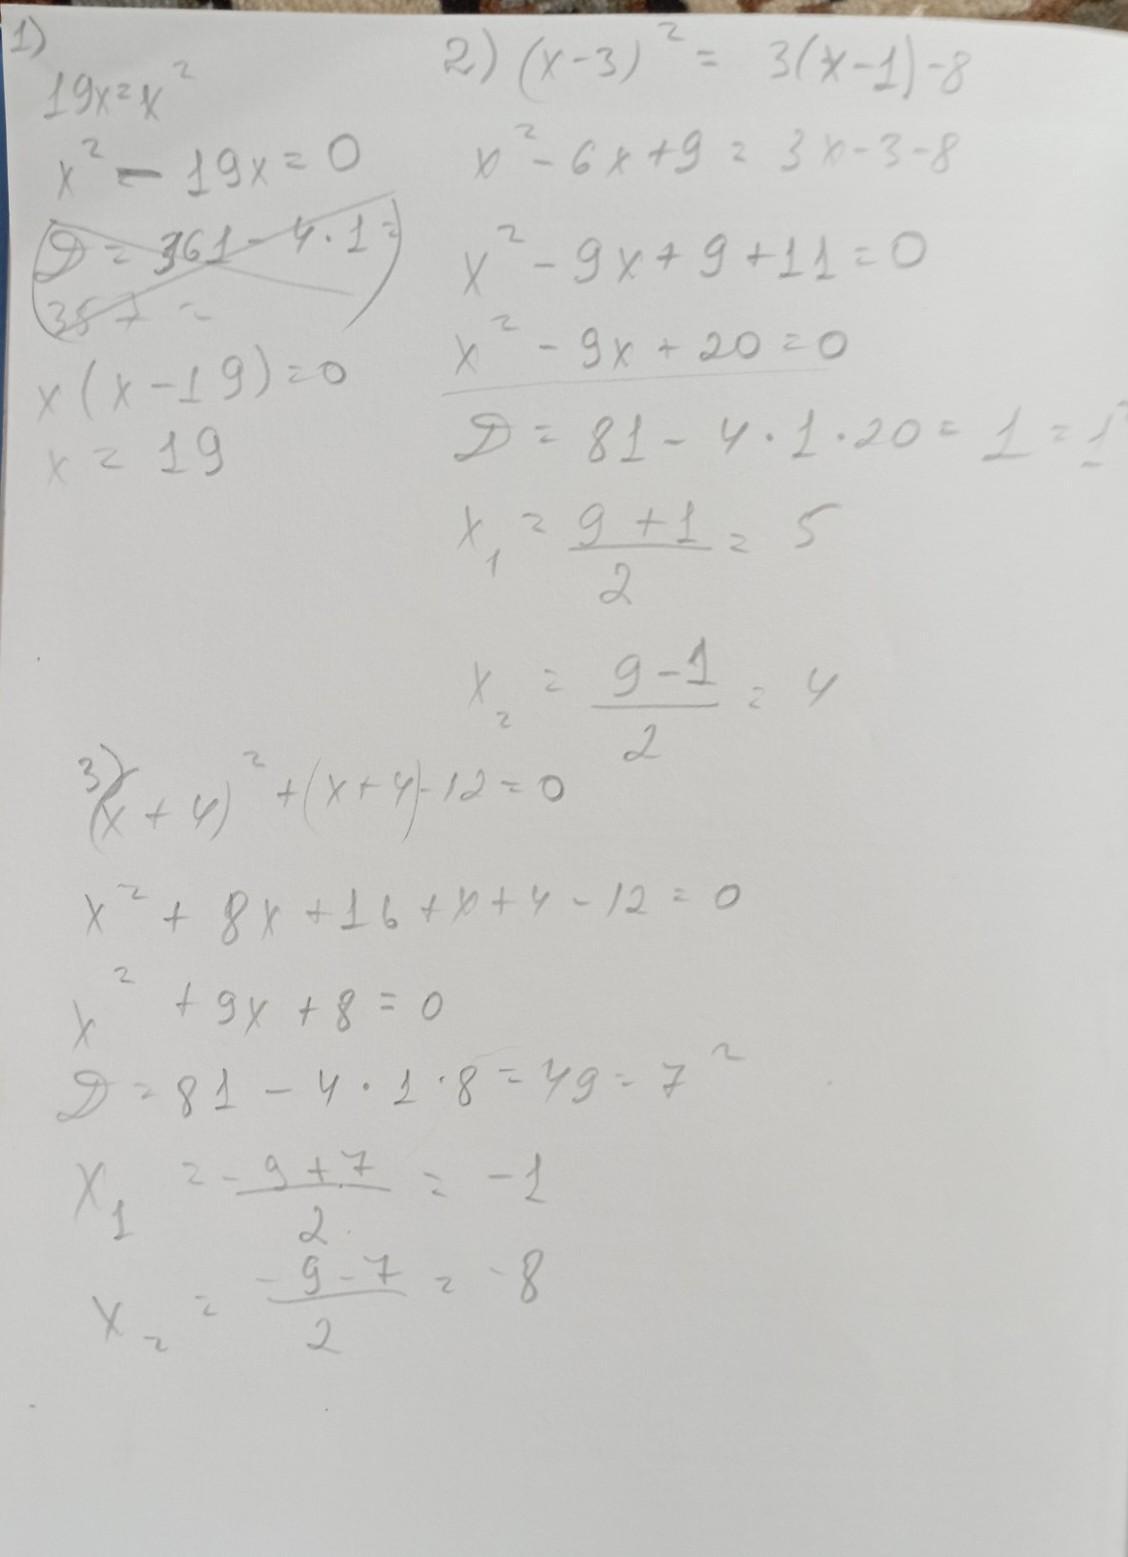 1)
19x=x²
x² - 19x=0
D = 361 - 4·1=
357 =
x(x-19)=0
x = 19
2) (x-3)² = 3(x-1)-8
x² - 6x+9 = 3x-3-8
x² - 9x+9+11=0
x² - 9x+20=0
D = 81 - 4·1·20= 1 = 1²
x₁ = (9+1)/2 = 5
x₂ = (9-1)/2 = 4
3) (x+4)² +(x+4)-12=0
x² + 8x+16+x+4-12=0
x² +9x+8=0
D = 81 - 4·1·8=49=7²
x₁ = (-9+7)/2 = -1
x₂ = (-9-7)/2 = -8